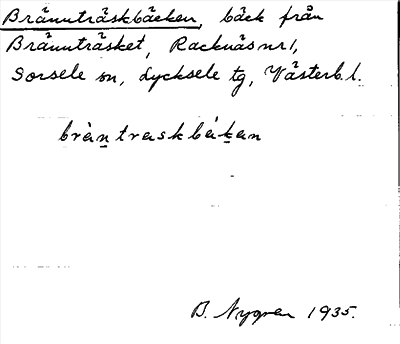 Bränuträskbäcken, bäck från
Bränuträsket, Racknäs nr 1,
Sorsele sn, Lycksele tg, Västerb. l.
bràn̲traskbák̲an
B. Nygren 1935.